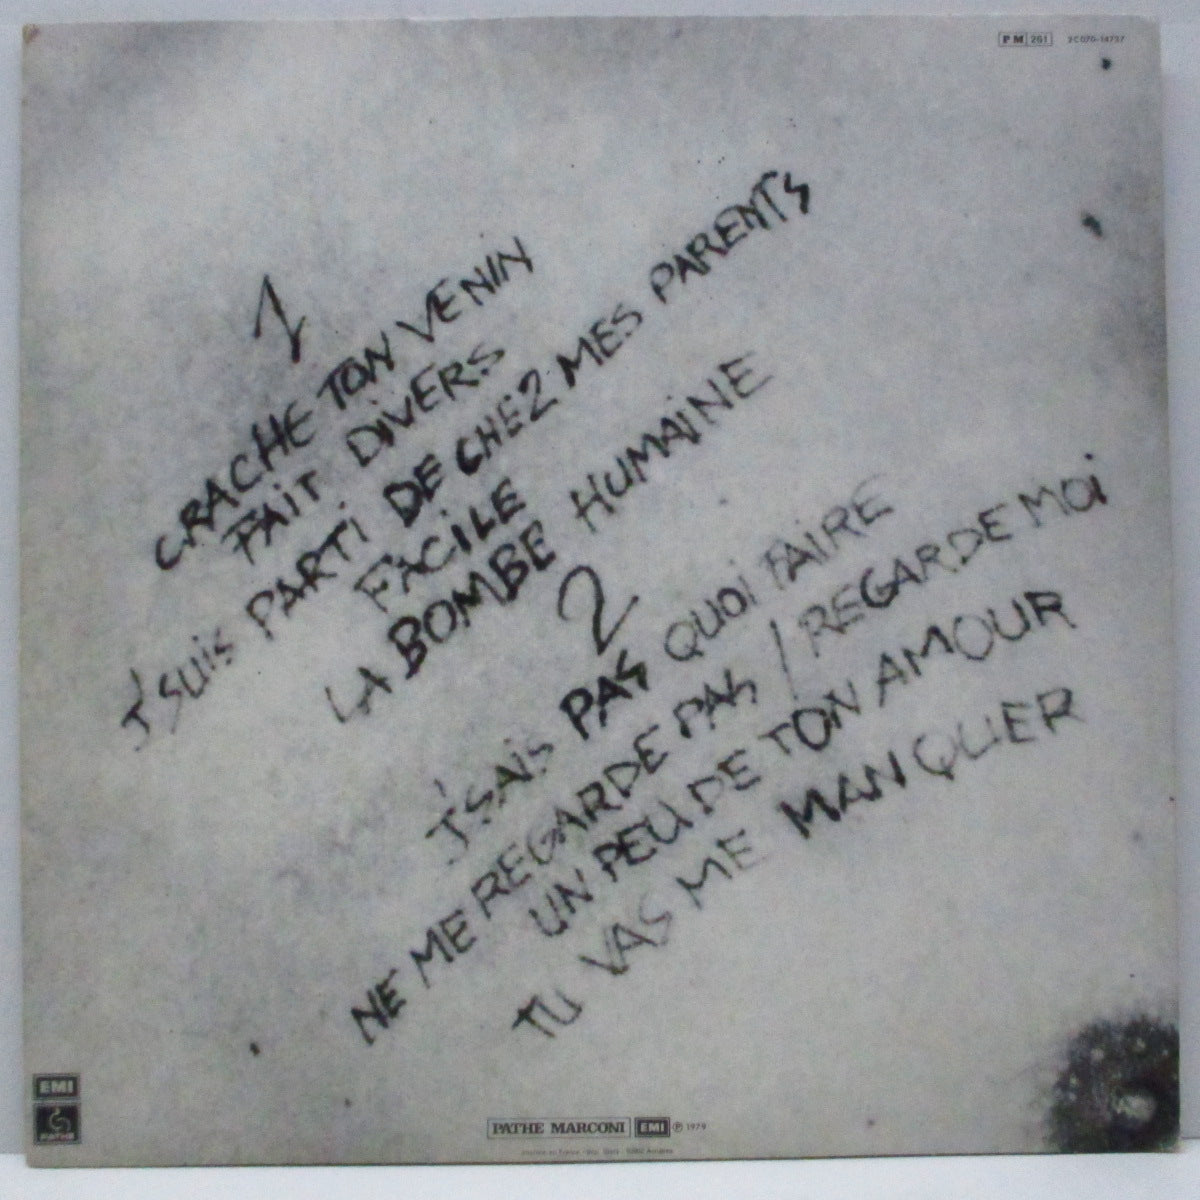 PM 261 2C070-14737
1
CRACHE TON VENIN
FAIT DIVERS
J'SUIS PARTI DE CHEZ MES PARENTS
FACILE
LA BOMBE HUMAINE
2
J'SAIS PAS QUOI FAIRE
NE ME REGARDE PAS / REGARDE MOI
UN PEU DE TON AMOUR
TU VAS ME MANQUER
EMI
PATHE
PATHE MARCONI EMI Ⓟ 1979